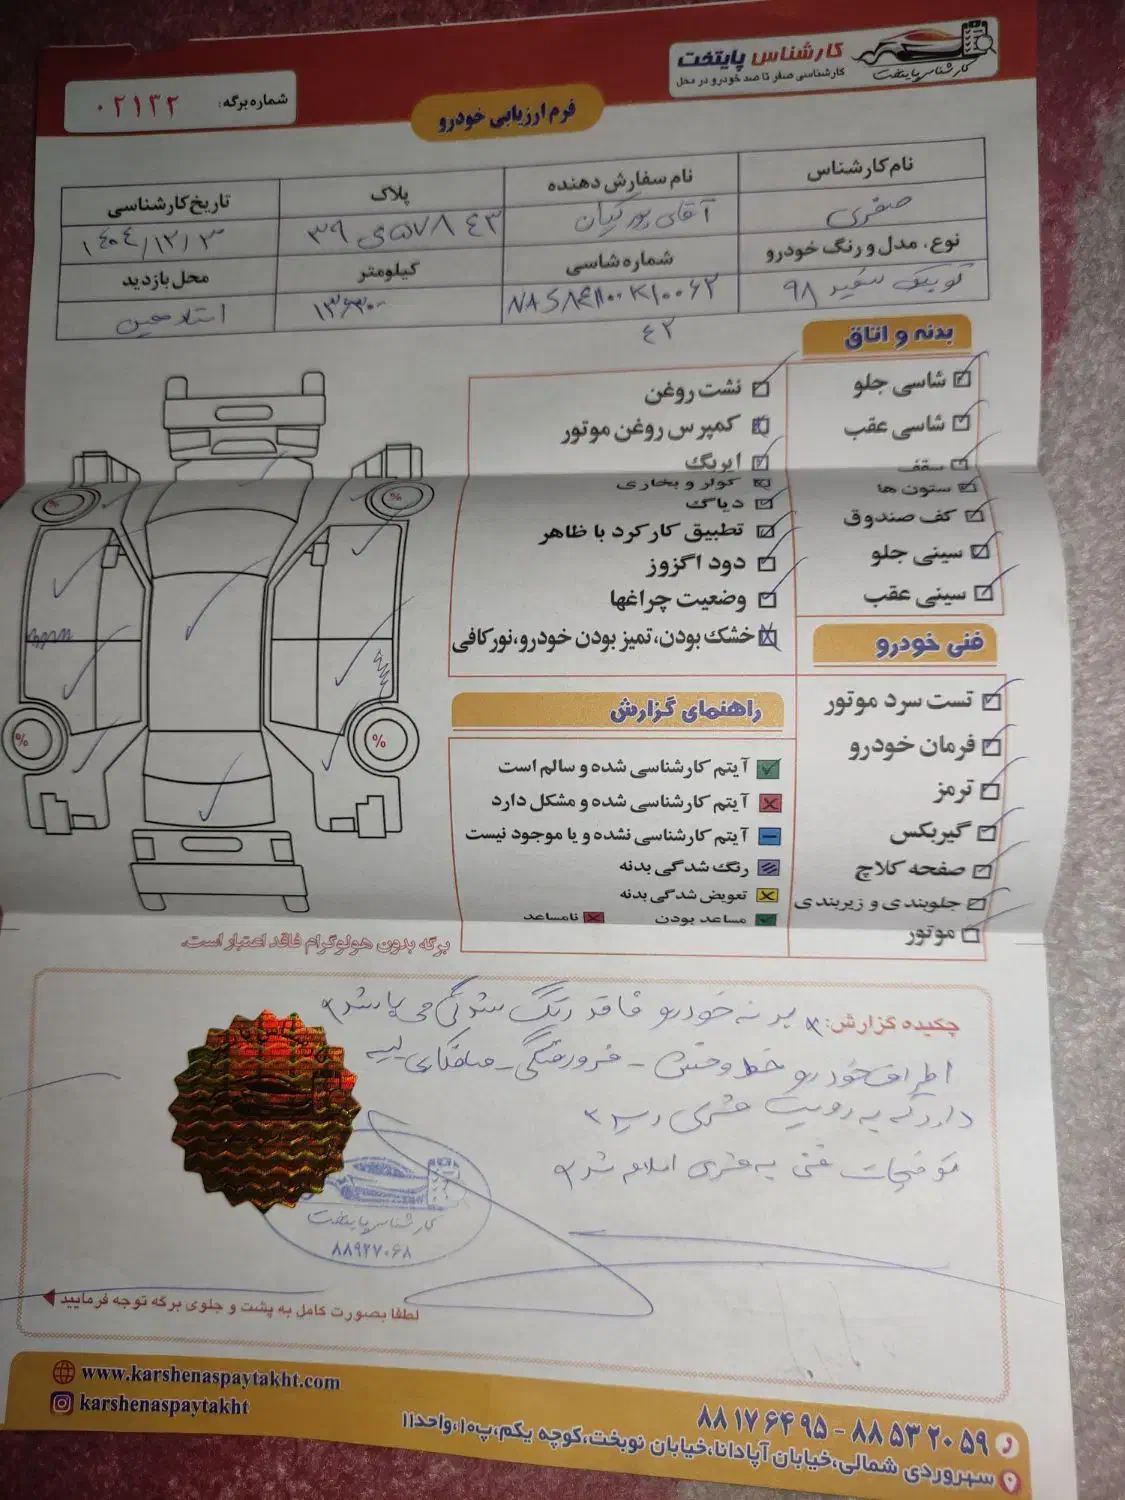 کارشناس پایتخت
کارشناسی صفر تا صد خودرو در محل
کارشناس پایتخت
شماره برگه: ۰۲۱۳۲
فرم ارزیابی خودرو
نام کارشناس
نام سفارش دهنده
پلاک
تاریخ کارشناسی
صفری
آقای پورکیان
۱۴۰۴/۱۲/۳
نوع، مدل و رنگ خودرو
شماره شاسی
کیلومتر
محل بازدید
کوییک سفید ۹۸
۱۳۶۳۰۰
استاد معین
۴۲
بدنه و اتاق
شاسی جلو
شاسی عقب
سقف
ستون ها
کف صندوق
سینی جلو
سینی عقب
نشت روغن
کمپرس روغن موتور
ایربگ
کولر و بخاری
دیاگ
تطبیق کارکرد با ظاهر
دود اگزوز
وضعیت چراغها
خشک بودن، تمیز بودن خودرو، نورکافی
%
%
%
%
فنی خودرو
تست سرد موتور
فرمان خودرو
ترمز
گیربکس
صفحه کلاچ
جلوبندی و زیربندی
موتور
راهنمای گزارش
آیتم کارشناسی شده و سالم است
آیتم کارشناسی شده و مشکل دارد
آیتم کارشناسی نشده و یا موجود نیست
رنگ شدگی بدنه
تعویض شدگی بدنه
مساعد بودن
نامساعد
برگه بدون هولوگرام فاقد اعتبار است.
چکیده گزارش: بدنه خودرو فاقد رنگ شدگی می باشد
اطراف خودرو خط و خش - فرورفتگی - صافکاری لیسه
دارد که به رویت مشتری رسید
توضیحات فنی به مشتری اعلام شد
کارشناس پایتخت
۸۸۹۲۷۰۶۸
لطفا بصورت کامل به پشت و جلوی برگه توجه فرمایید
www.karshenaspaytakht.com
karshenaspaytakht
۸۸۱۷۶۴۹۵ - ۸۸۵۳۲۰۵۹
سهروردی شمالی، خیابان آپادانا، خیابان نوبخت، کوچه یکم، پ۱۰، واحد۱۱